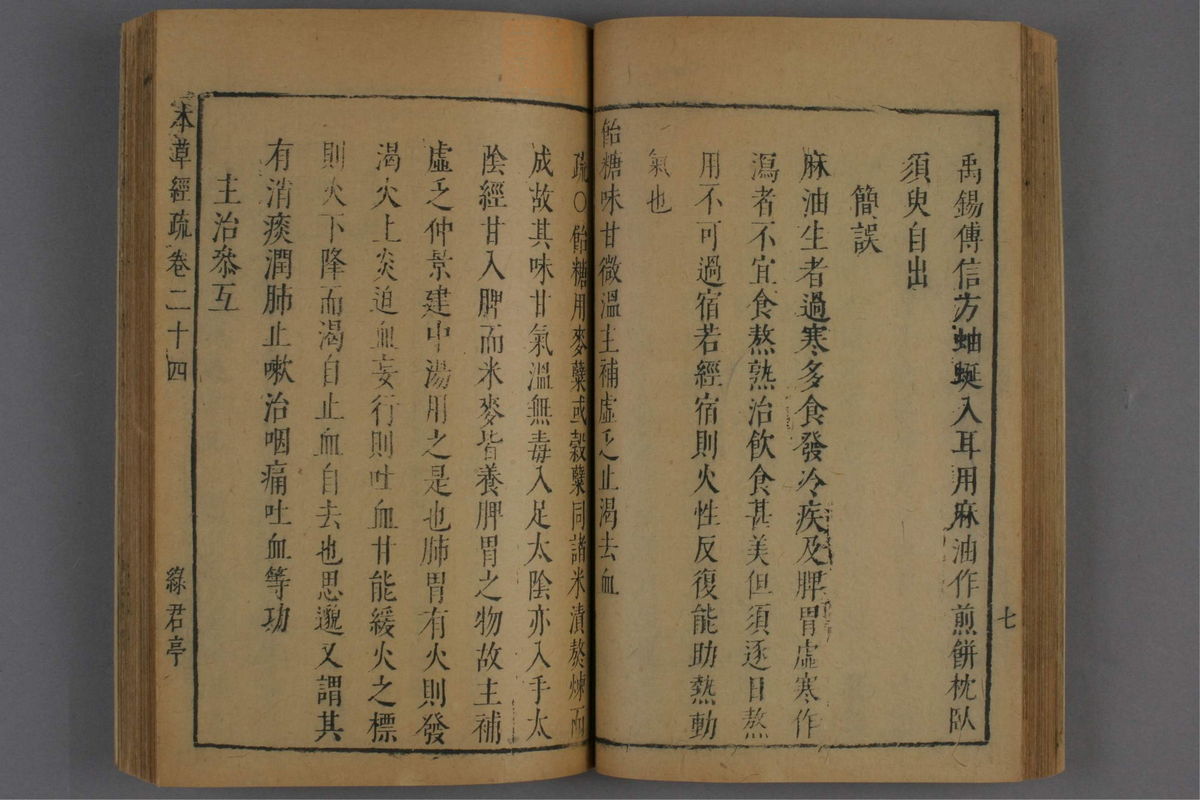 七
禹錫傳信方蚰蜒入耳用麻油作煎餅枕臥
須臾自出
簡誤
麻油生者過寒多食發冷疾及脾胃虛寒作
瀉者不宜食熬熟治飲食甚美但須逐日熬
用不可過宿若經宿則火性反復能助熱動
氣也
飴糖味甘微溫主補虛乏止渴去血
疏○飴糖用麥櫱或穀櫱同諸米漬熬煉而
成故其味甘氣溫無毒入足太陰亦入手太
陰經甘入脾而米麥皆養脾胃之物故主補
虛乏仲景建中湯用之是也肺胃有火則發
渴火上炎迫血妄行則吐血甘能緩火之標
則火下降而渴自止血自去也思邈又謂其
有消痰潤肺止嗽治咽痛吐血等功
主治叅互
本草經疏卷二十四
綠君亭